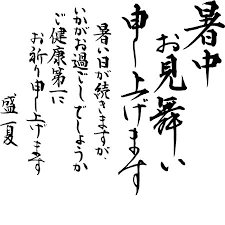 暑中
お見舞い
申し上げます
暑い日が続きますが、
いかがお過ごしでしょうか
ご健康第一に
お祈り申し上げます
盛夏